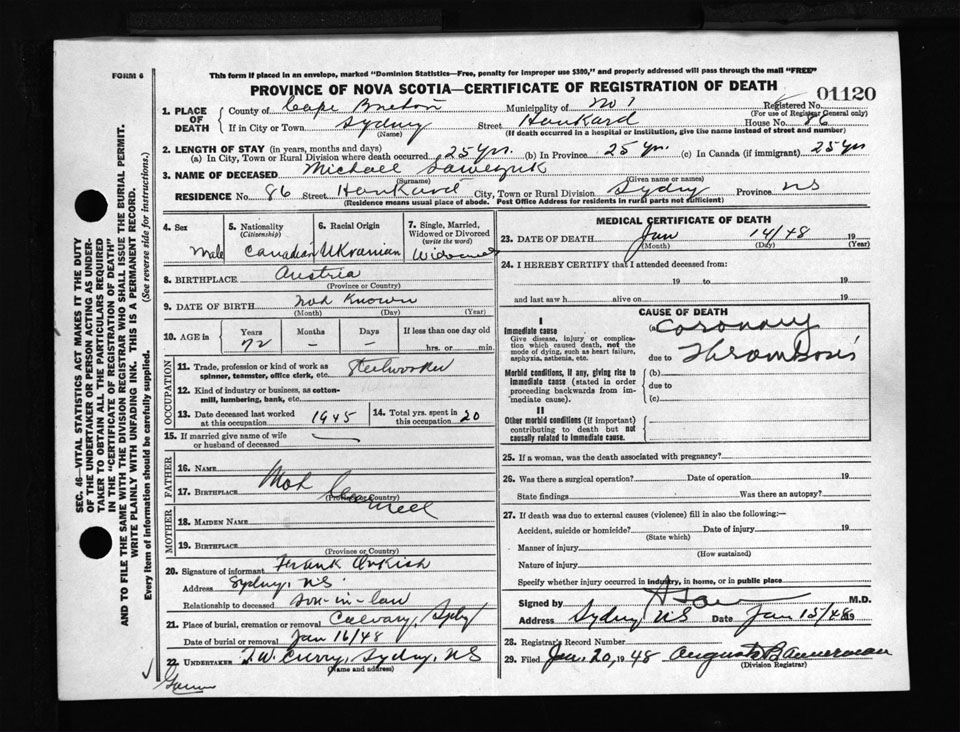 FORM 6
This form if placed in an envelope, marked "Dominion Statistics—Free, penalty for improper use $300," and properly addressed will pass through the mail "FREE"
PROVINCE OF NOVA SCOTIA—CERTIFICATE OF REGISTRATION OF DEATH
01120
1. PLACE OF DEATH County of Cape Breton Municipality of No 1 Registered No.
(For use of Registrar General only)
If in City or Town Sydney Street Hankard House No. 86
(Name) (If death occurred in a hospital or institution, give the name instead of street and number)
2. LENGTH OF STAY (in years, months and days)
(a) In City, Town or Rural Division where death occurred 25 Yrs. (b) In Province 25 Yrs. (c) In Canada (if immigrant) 25 Yrs
3. NAME OF DECEASED Michael
(Surname) (Given name or names)
RESIDENCE No. 86 Street Hankard City, Town or Rural Division Sydney Province NS
(Residence means usual place of abode. Post Office Address for residents in rural parts not sufficient)
4. Sex 5. Nationality (Citizenship) 6. Racial Origin 7. Single, Married, Widowed or Divorced (write the word)
Male Canadian Ukranian Widowed
8. BIRTHPLACE Austria
(Province or Country)
9. DATE OF BIRTH not Known
(Month) (Day) (Year)
10. AGE in Years Months Days If less than one day old
72 – – hrs. or min.
OCCUPATION
11. Trade, profession or kind of work as spinner, teamster, office clerk, etc. Steelworker
12. Kind of industry or business, as cotton-mill, lumbering, bank, etc.
13. Date deceased last worked at this occupation 1945 14. Total yrs. spent in this occupation 20
15. If married give name of wife or husband of deceased
FATHER
16. Name
17. Birthplace
(Province or Country)
MOTHER
18. Maiden Name
19. Birthplace
(Province or Country)
20. Signature of informant Frank
Address Sydney, NS
Relationship to deceased son-in-law
21. Place of burial, cremation or removal Calvary, Sydney
Date of burial or removal Jan 16/48
22. UNDERTAKER T.W. Curry, Sydney, NS
(Name and address)
MEDICAL CERTIFICATE OF DEATH
23. DATE OF DEATH Jan 14/48 19
(Month) (Day) (Year)
24. I HEREBY CERTIFY that I attended deceased from:
19 to 19
and last saw h alive on 19
CAUSE OF DEATH
I
Immediate cause (a) Coronary
Give disease, injury or complication which caused death, not the mode of dying, such as heart failure, asphyxia, asthenia, etc.
due to Thrombosis
Morbid conditions, if any, giving rise to immediate cause (stated in order proceeding backwards from immediate cause).
(b)
due to
(c)
II
Other morbid conditions (if important) contributing to death but not causally related to immediate cause.
25. If a woman, was the death associated with pregnancy?
26. Was there a surgical operation? Date of operation 19
State findings Was there an autopsy?
27. If death was due to external causes (violence) fill in also the following:—
Accident, suicide or homicide? Date of injury 19
(State which)
Manner of injury
(How sustained)
Nature of injury
Specify whether injury occurred in industry, in home, or in public place
Signed by M.D.
Address Sydney NS Date Jan 15/48 19
28. Registrar's Record Number
29. Filed Jan. 20, 1948 August Bannerman
(Division Registrar)
SEC. 46—VITAL STATISTICS ACT MAKES IT THE DUTY
OF THE UNDERTAKER OR PERSON ACTING AS UNDER-
TAKER TO OBTAIN ALL THE PARTICULARS REQUIRED
IN THE "CERTIFICATE OF REGISTRATION OF DEATH"
AND TO FILE THE SAME WITH THE DIVISION REGISTRAR WHO SHALL ISSUE THE BURIAL PERMIT.
WRITE PLAINLY WITH UNFADING INK. THIS IS A PERMANENT RECORD.
Every item of information should be carefully supplied. (See reverse side for instructions.)